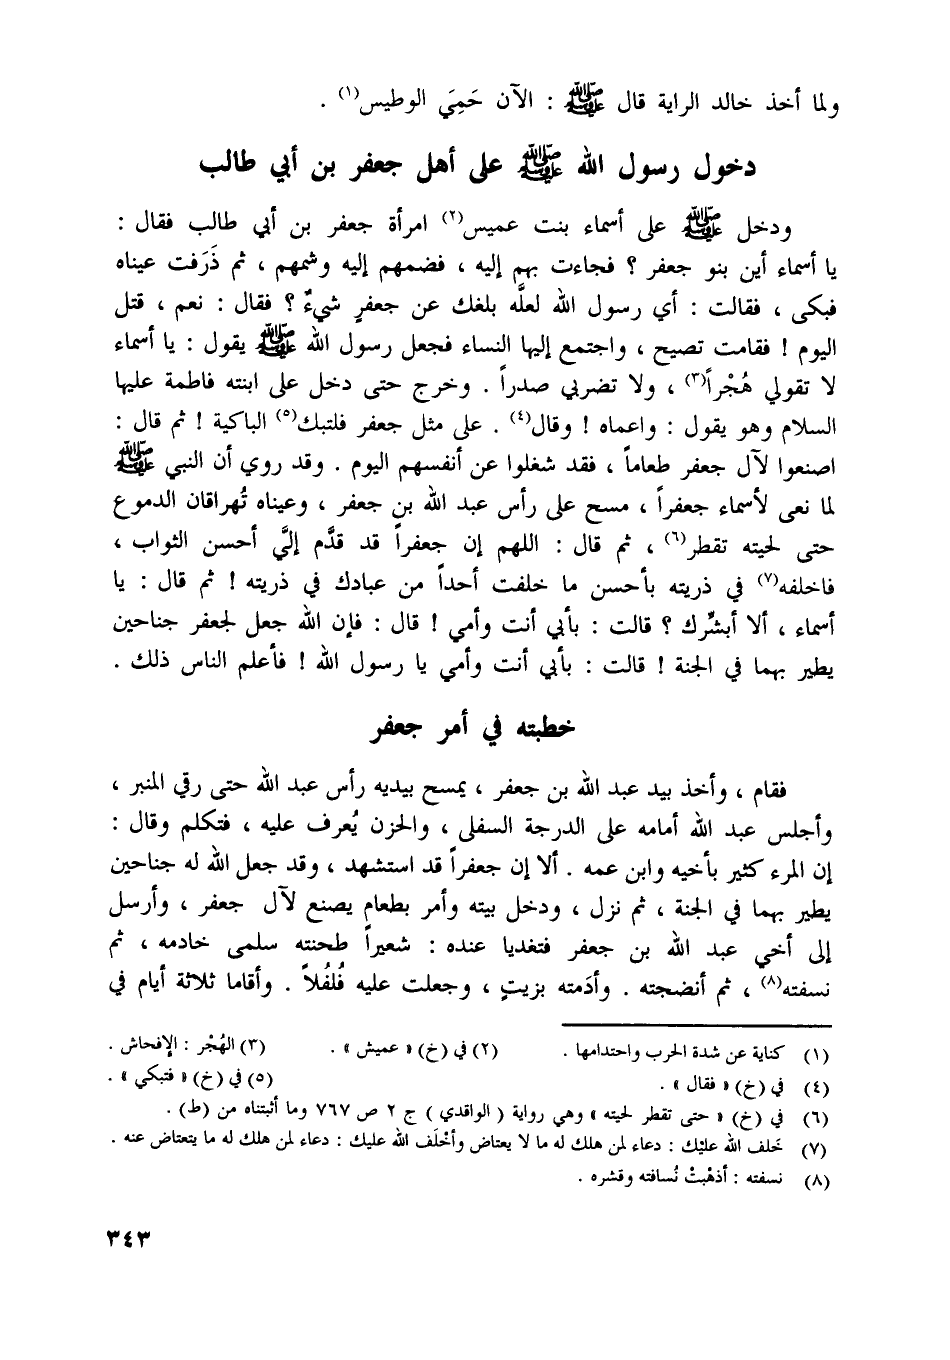 ولما أخذ خالد الراية قال ﷺ : الآن حَمِيَ الوطيس(١) .
دخول رسول الله ﷺ على أهل جعفر بن أبي طالب
ودخل ﷺ على أسماء بنت عميس(٢) امرأة جعفر بن أبي طالب فقال :
يا أسماء أين بنو جعفر ؟ فجاءت بهم إليه ، فضمهم إليه وشمهم ، ثم ذَرَفت عيناه
فبكى ، فقالت : أي رسول الله لعلَّه بلغك عن جعفرٍ شيءٌ ؟ فقال : نعم ، قتل
اليوم ! فقامت تصيح ، واجتمع إليها النساء فجعل رسول الله ﷺ يقول : يا أسماء
لا تقولي هُجْراً(٣) ، ولا تضربي صدراً . وخرج حتى دخل على ابنته فاطمة عليها
السلام وهو يقول : واعماه ! وقال(٤) . على مثل جعفر فلتبك(٥) الباكية ! ثم قال :
اصنعوا لآل جعفر طعاماً ، فقد شغلوا عن أنفسهم اليوم . وقد روي أن النبي ﷺ
لما نعى لأسماء جعفراً ، مسح على رأس عبد الله بن جعفر ، وعيناه تُهراقان الدموع
حتى لحيته تقطر(٦) ، ثم قال : اللهم إن جعفراً قد قدَّم إليَّ أحسن الثواب ،
فاخلفه(٧) في ذريته بأحسن ما خلفت أحداً من عبادك في ذريته ! ثم قال : يا
أسماء ، ألا أبشّرك ؟ قالت : بأبي أنت وأمي ! قال : فإن الله جعل لجعفر جناحين
يطير بهما في الجنة ! قالت : بأبي أنت وأمي يا رسول الله ! فأعلم الناس ذلك .
خطبته في أمر جعفر
فقام ، وأخذ بيد عبد الله بن جعفر ، يمسح بيديه رأس عبد الله حتى رقي المنبر ،
وأجلس عبد الله أمامه على الدرجة السفلى ، والحزن يُعرف عليه ، فتكلم وقال :
إن المرء كثير بأخيه وابن عمه . ألا إن جعفراً قد استشهد ، وقد جعل الله له جناحين
يطير بهما في الجنة ، ثم نزل ، ودخل بيته وأمر بطعام يصنع لآل جعفر ، وأرسل
إلى أخي عبد الله بن جعفر فتغديا عنده : شعيراً طحنته سلمى خادمه ، ثم
نسفته(٨) ، ثم أنضجته . وأدَمته بزيتٍ ، وجعلت عليه فُلفُلاً . وأقاما ثلاثة أيام في
(١) كناية عن شدة الحرب واحتدامها . (٢) في (خ) « عميش » . (٣) الهُجْر : الإفحاش .
(٤) في (خ) « فقال » . (٥) في (خ) « فتبكي » .
(٦) في (خ) « حتى تقطر لحيته » وهي رواية ( الواقدي ) ج ٢ ص ٧٦٧ وما أثبتناه من (ط) .
(٧) خَلف الله عليْك : دعاء لمن هلك له ما لا يعتاض وأخْلَف الله عليك : دعاء لمن هلك له ما يتعتاض عنه .
(٨) نسفته : أذهْبتْ نُسافته وقشره .
٣٤٣